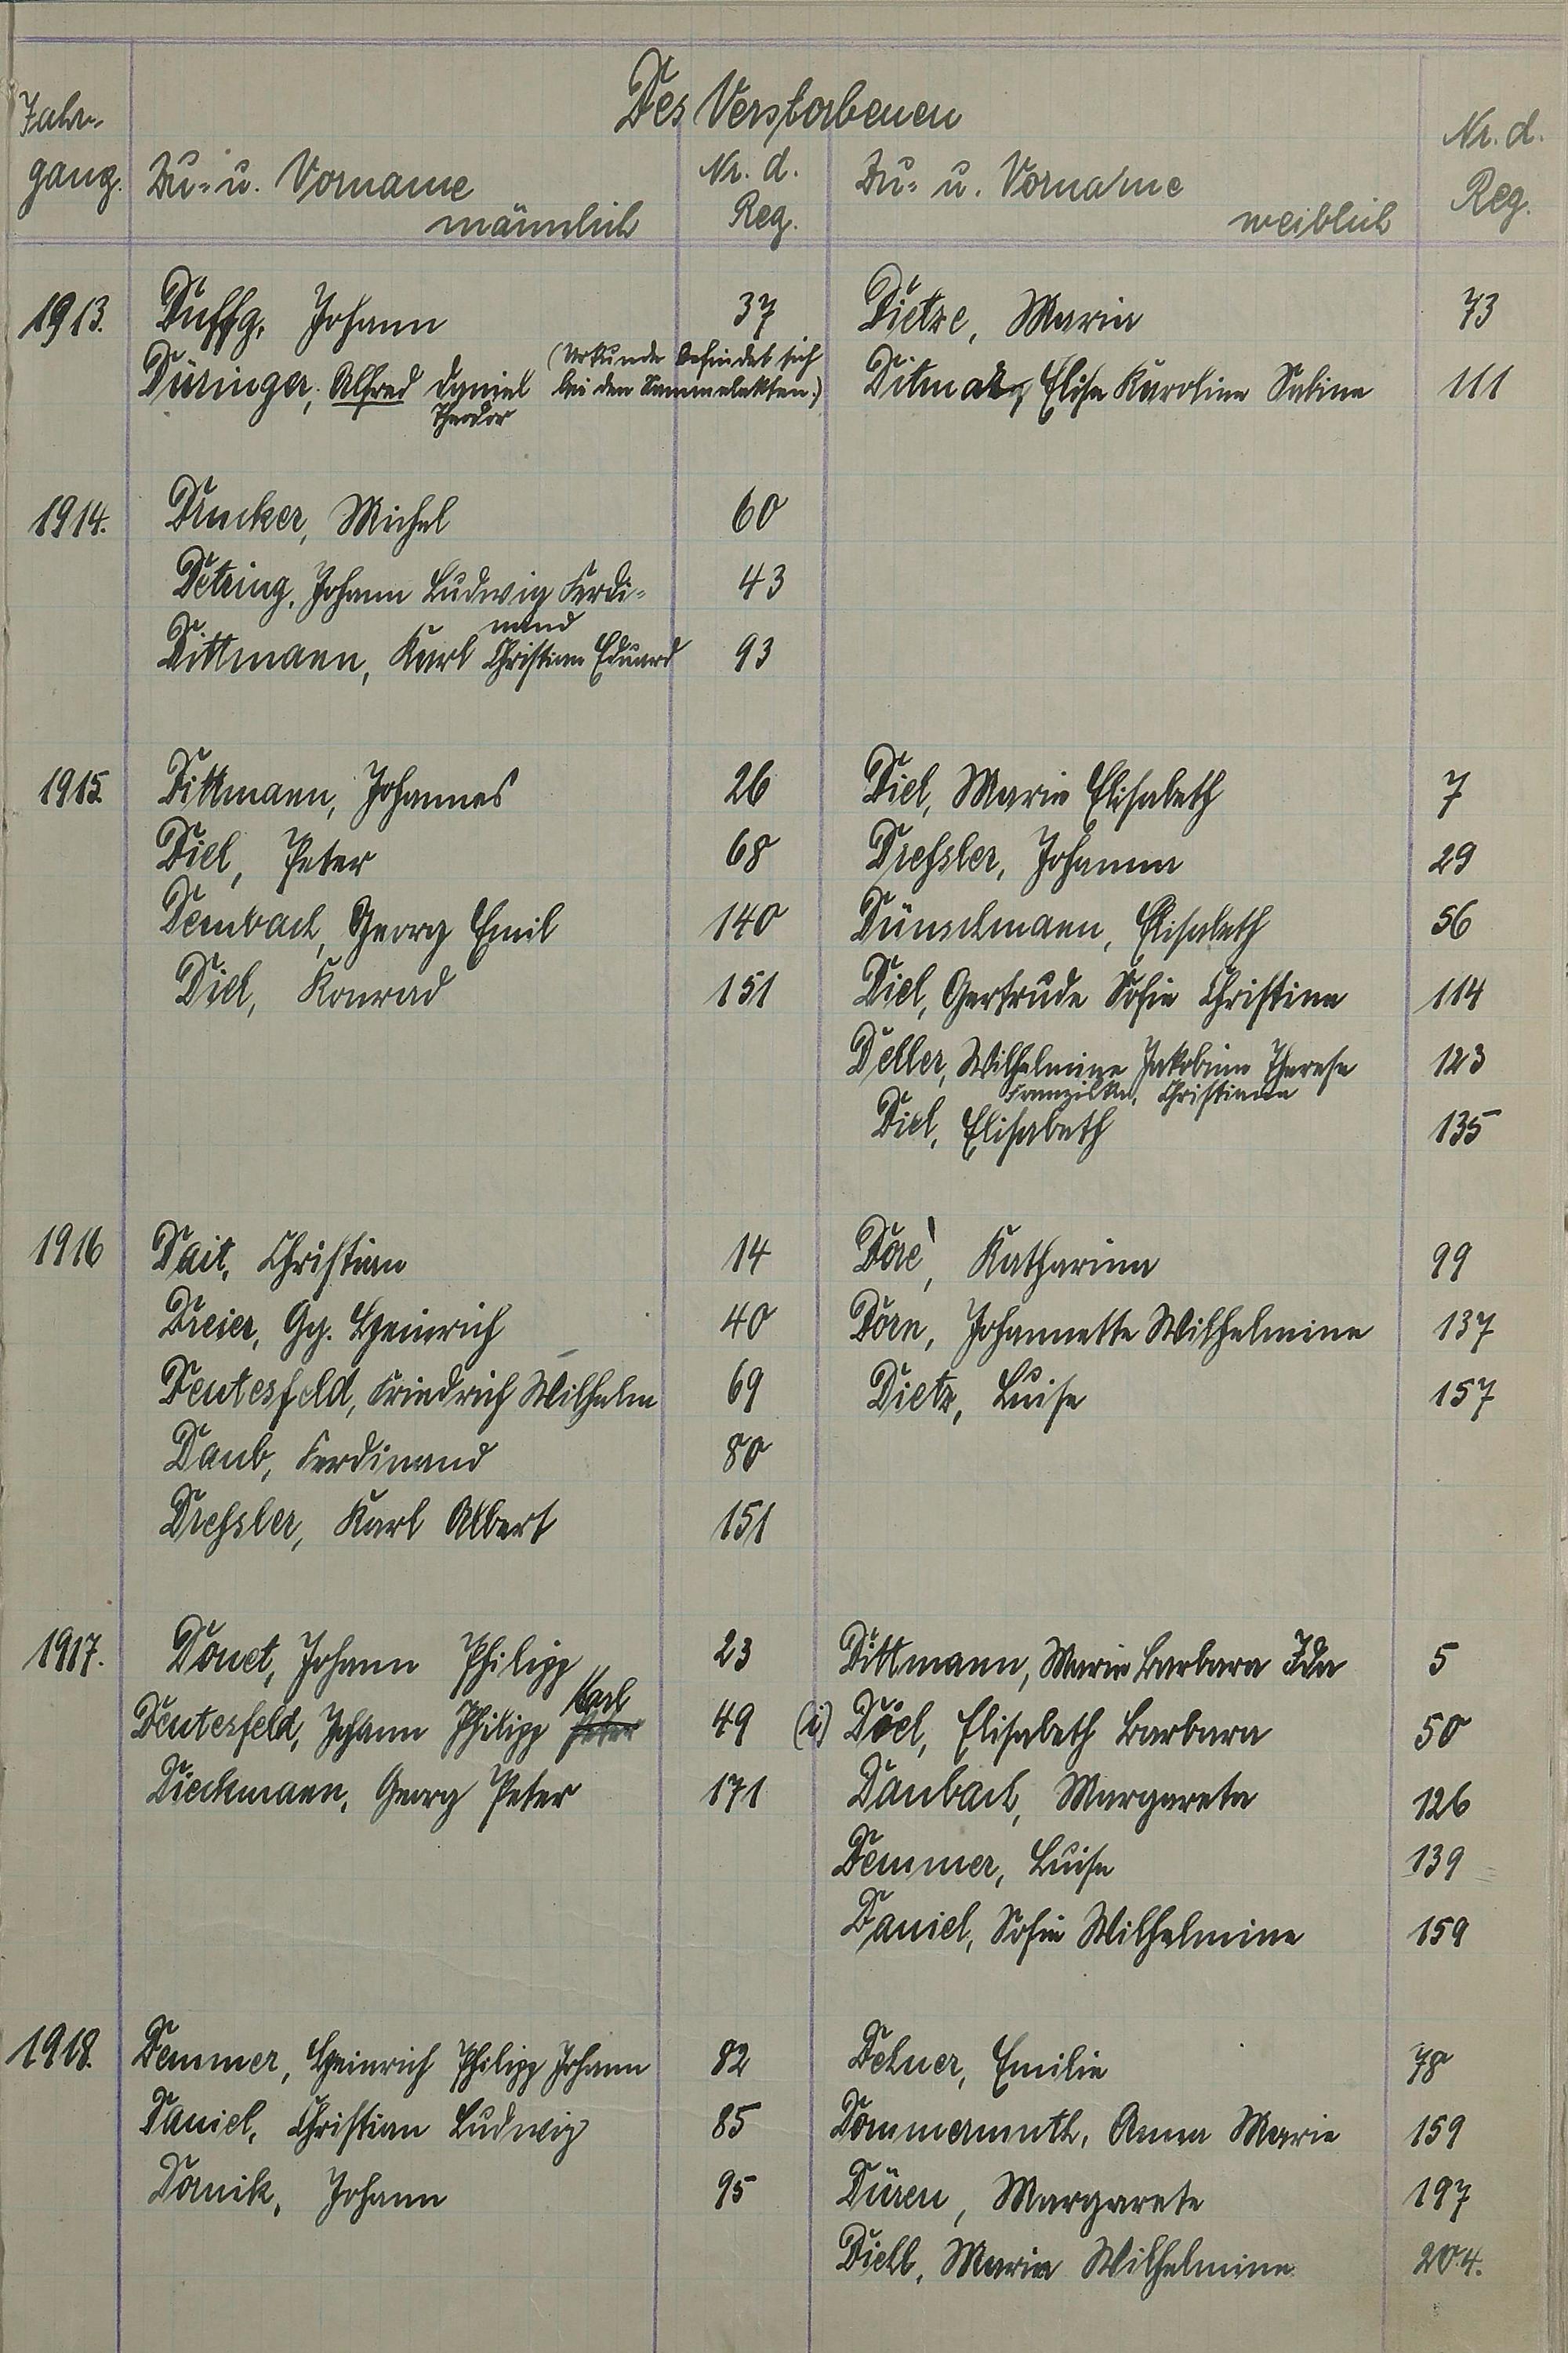 Des Verstorbenen
Jahr-
gang. Zu- u. Vorname männlich Nr. d. Reg. Zu- u. Vorname weiblich Nr. d. Reg.
1913. Duffg, Johann 37 Dietze, Maria 73
Düringer, Alfred Daniel (Urkunde befindet sich
Theodor bei den Sammelakten.) Ditmar, Elise Karoline Sabine 111
1914. Drucker, Michel 60
Detring, Johann Ludwig Ferdi- 43
nand
Dittmann, Karl Christian Eduard 93
1915. Dittmann, Johannes 26 Diel, Marie Elisabeth 7
Diel, Peter 68 Dreßler, Johanna 29
Dembach, Georg Emil 140 Dünschmann, Elisabeth 56
Diel, Konrad 151 Diel, Gertrude Sofie Christine 114
Deller, Wilhelmine Jakobine Therese 123
Franziska, Christiane
Diel, Elisabeth 135
1916 Dait, Christian 14 Doré, Katharina 99
Dreier, Gg. Heinrich 40 Dorn, Johannette Wilhelmine 137
Deutesfeld, Friedrich Wilhelm 69 Dietz, Luise 157
Daub, Ferdinand 80
Dreßler, Karl Albert 151
1917. Donet, Johann Philipp 23 Dittmann, Marie Barbara Ida 5
Karl
Deutesfeld, Johann Philipp Peter 49 (i) Döel, Elisabeth Barbara 50
Dieckmann, Georg Peter 171 Daubach, Margareta 126
Demmer, Luise 139
Daniel, Sofie Wilhelmine 159
1918. Demmer, Heinrich Philipp Johann 82 Dehner, Emilie 78
Daniel, Christian Ludwig 85 Dommermuth, Anna Marie 159
Dornik, Johann 95 Düren, Margarete 197
Diehl, Maria Wilhelmine 204.